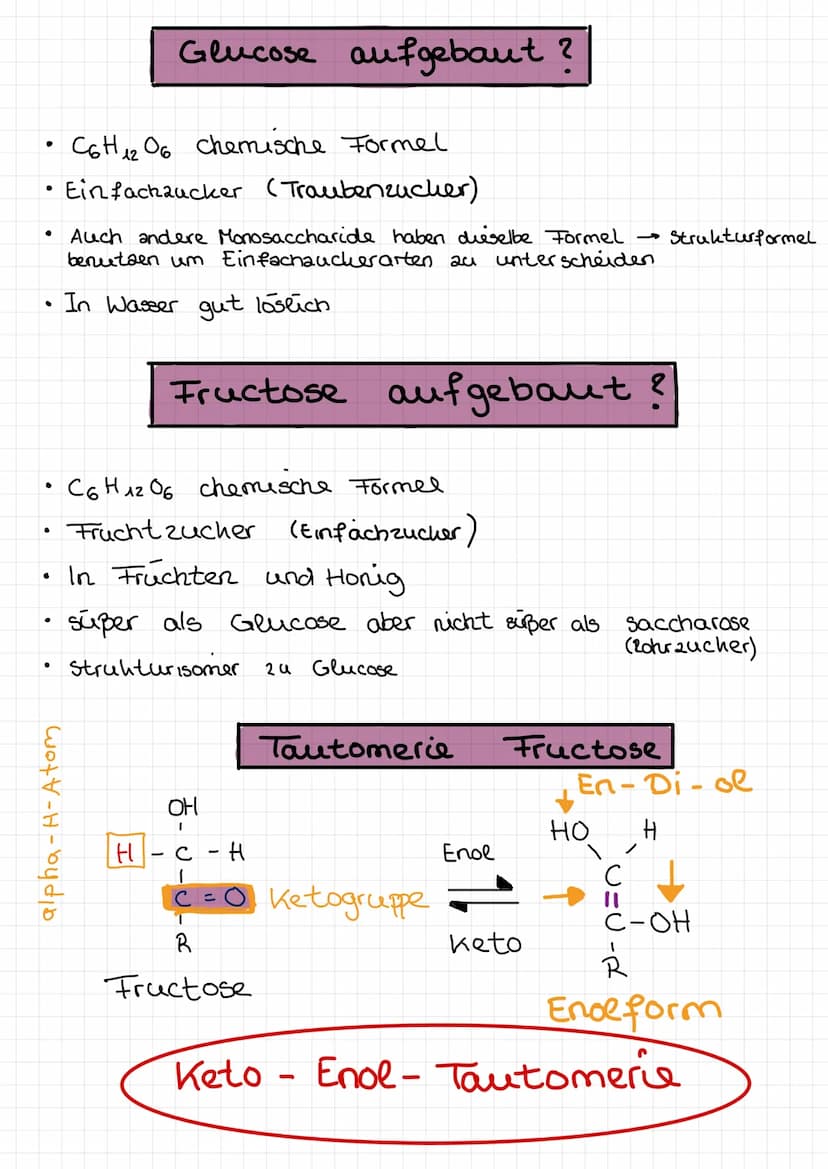 Glucose aufgebaut?
• C6H12O6 chemische Formel
• Einfachzucker (Traubenzucker)
• Auch andere Monosaccharide haben dieselbe Formel → Strukturformel
benutzen um Einfachzuckerarten zu unterscheiden
• In Wasser gut löslich
Fructose aufgebaut?
• C6H12O6 chemische Formel
• Fruchtzucker (Einfachzucker)
• In Früchten und Honig
• süßer als Glucose aber nicht süßer als Saccharose
(Rohrzucker)
• Strukturisomer zu Glucose
Tautomerie Fructose
alpha-H-Atom
OH
H - C - H
C = O Ketogruppe
R
Fructose
Enol
Keto
En-Di-ol
HO H
C
C-OH
R
Enolform
Keto-Enol-Tautomerie